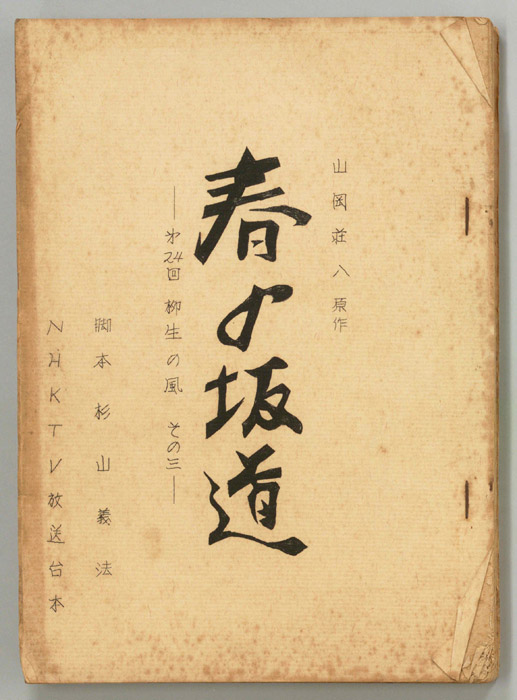 山岡荘八 原作
春の坂道
―第24回 柳生の風 その三―
脚本 杉山義法
NHKTV放送台本